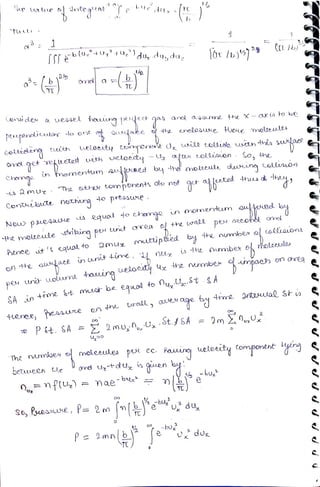 a³ = 1 / ∫∫∫ e^-b(Ux² + Uy² + Uz²) dUx dUy dUz
a³ = (b/π)^3/2 and a = (b/π)^1/2
Consider a vessel having perfect gas and assume the x-axis to be
perpendicular to one of surface of the enclosure. Those molecules
colliding with velocity component Ux will collide with this surface
and get reflected with velocity -Ux after collision. So, the
change in momentum suffered by the molecule during collision
is 2mUx. The other components do not get affected thus they
contribute nothing to pressure.
Now pressure is equal to change in momentum suffered by
the molecule striking per unit area of the wall per second and
hence it's equal to 2mUx multiplied by the number of collisions
on the surface in unit time. If nUx is the number of molecules
per unit volume having velocity Ux the number of impacts on area
δA in time δt must be equal to nUx Ux δt δA
Hence, Pressure on the wall, average by time interval δt is
P δt. δA = Σ 2mUx nUx Ux δt δA = 2m Σ nUx Ux²
The number of molecules per cc having velocity component lying
between Ux and Ux+dUx is given by:
nUx = nf(Ux) = nae^-bUx² = n (b/π)^1/2 e^-bUx²
So, Pressure, P = 2m ∫ n (b/π)^1/2 e^-bUx² Ux² dUx
P = 2mn (b/π)^1/2 ∫ e^-bUx² Ux² dUx